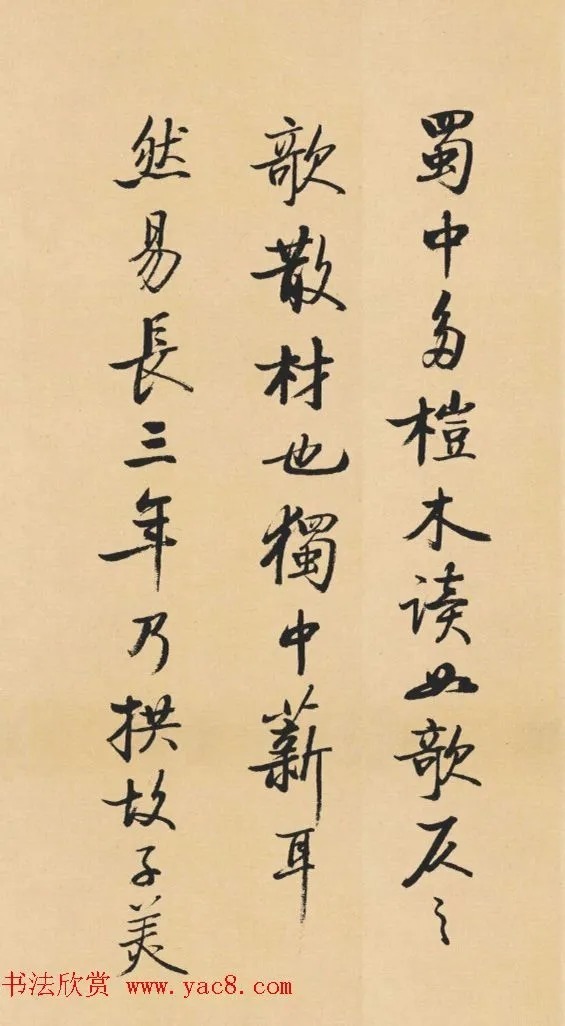 蜀中多榿木读如欹仄之
欹散材也獨中薪耳
然易長三年乃拱故子美
书法欣赏 www.yac8.com